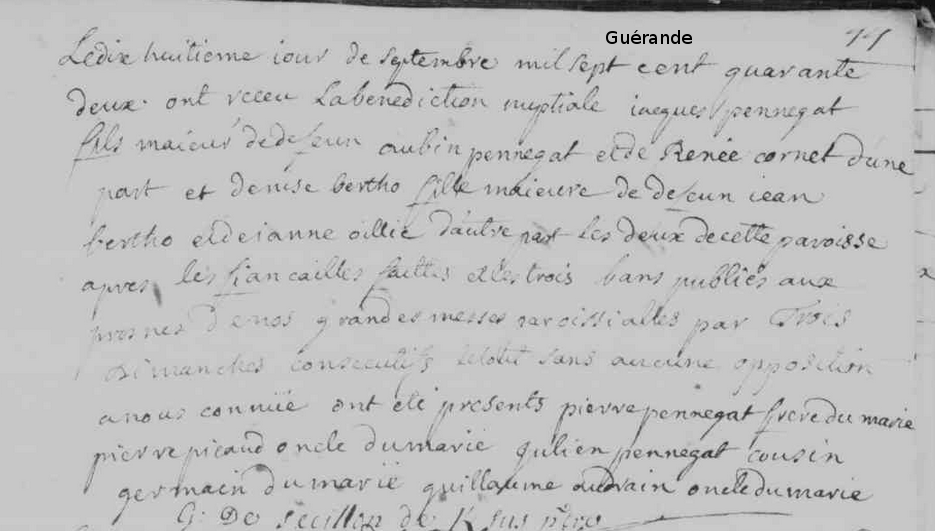 Guérande
Ledix huitieme iour de septembre mil sept cent quarante
deux. ont receu Labenediction nuptiale iacques pennegat
fils maieur dedefeun aubin pennegat etde Renée cornet dune
part et denise bertho fille maieure de defeun iean
bertho etdeianne oillic d'autre part les deux decette paroisse
apres les fiancailles faittes etles trois bans publiés aux
prosnes denos grandes messes paroissialles par Trois
dimanches consecutifs letout sans aucune opposition
anous connüe ont eté presents pierre pennegat frere du marié
pierre picaud oncle dumarié julien pennegat cousin
germain dumarié guillaume audrain oncle dumarie
G: De secillon de K sus ptre